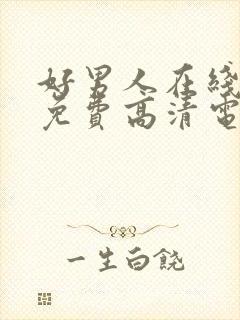 好男人在线
免费高清电
一生白饶